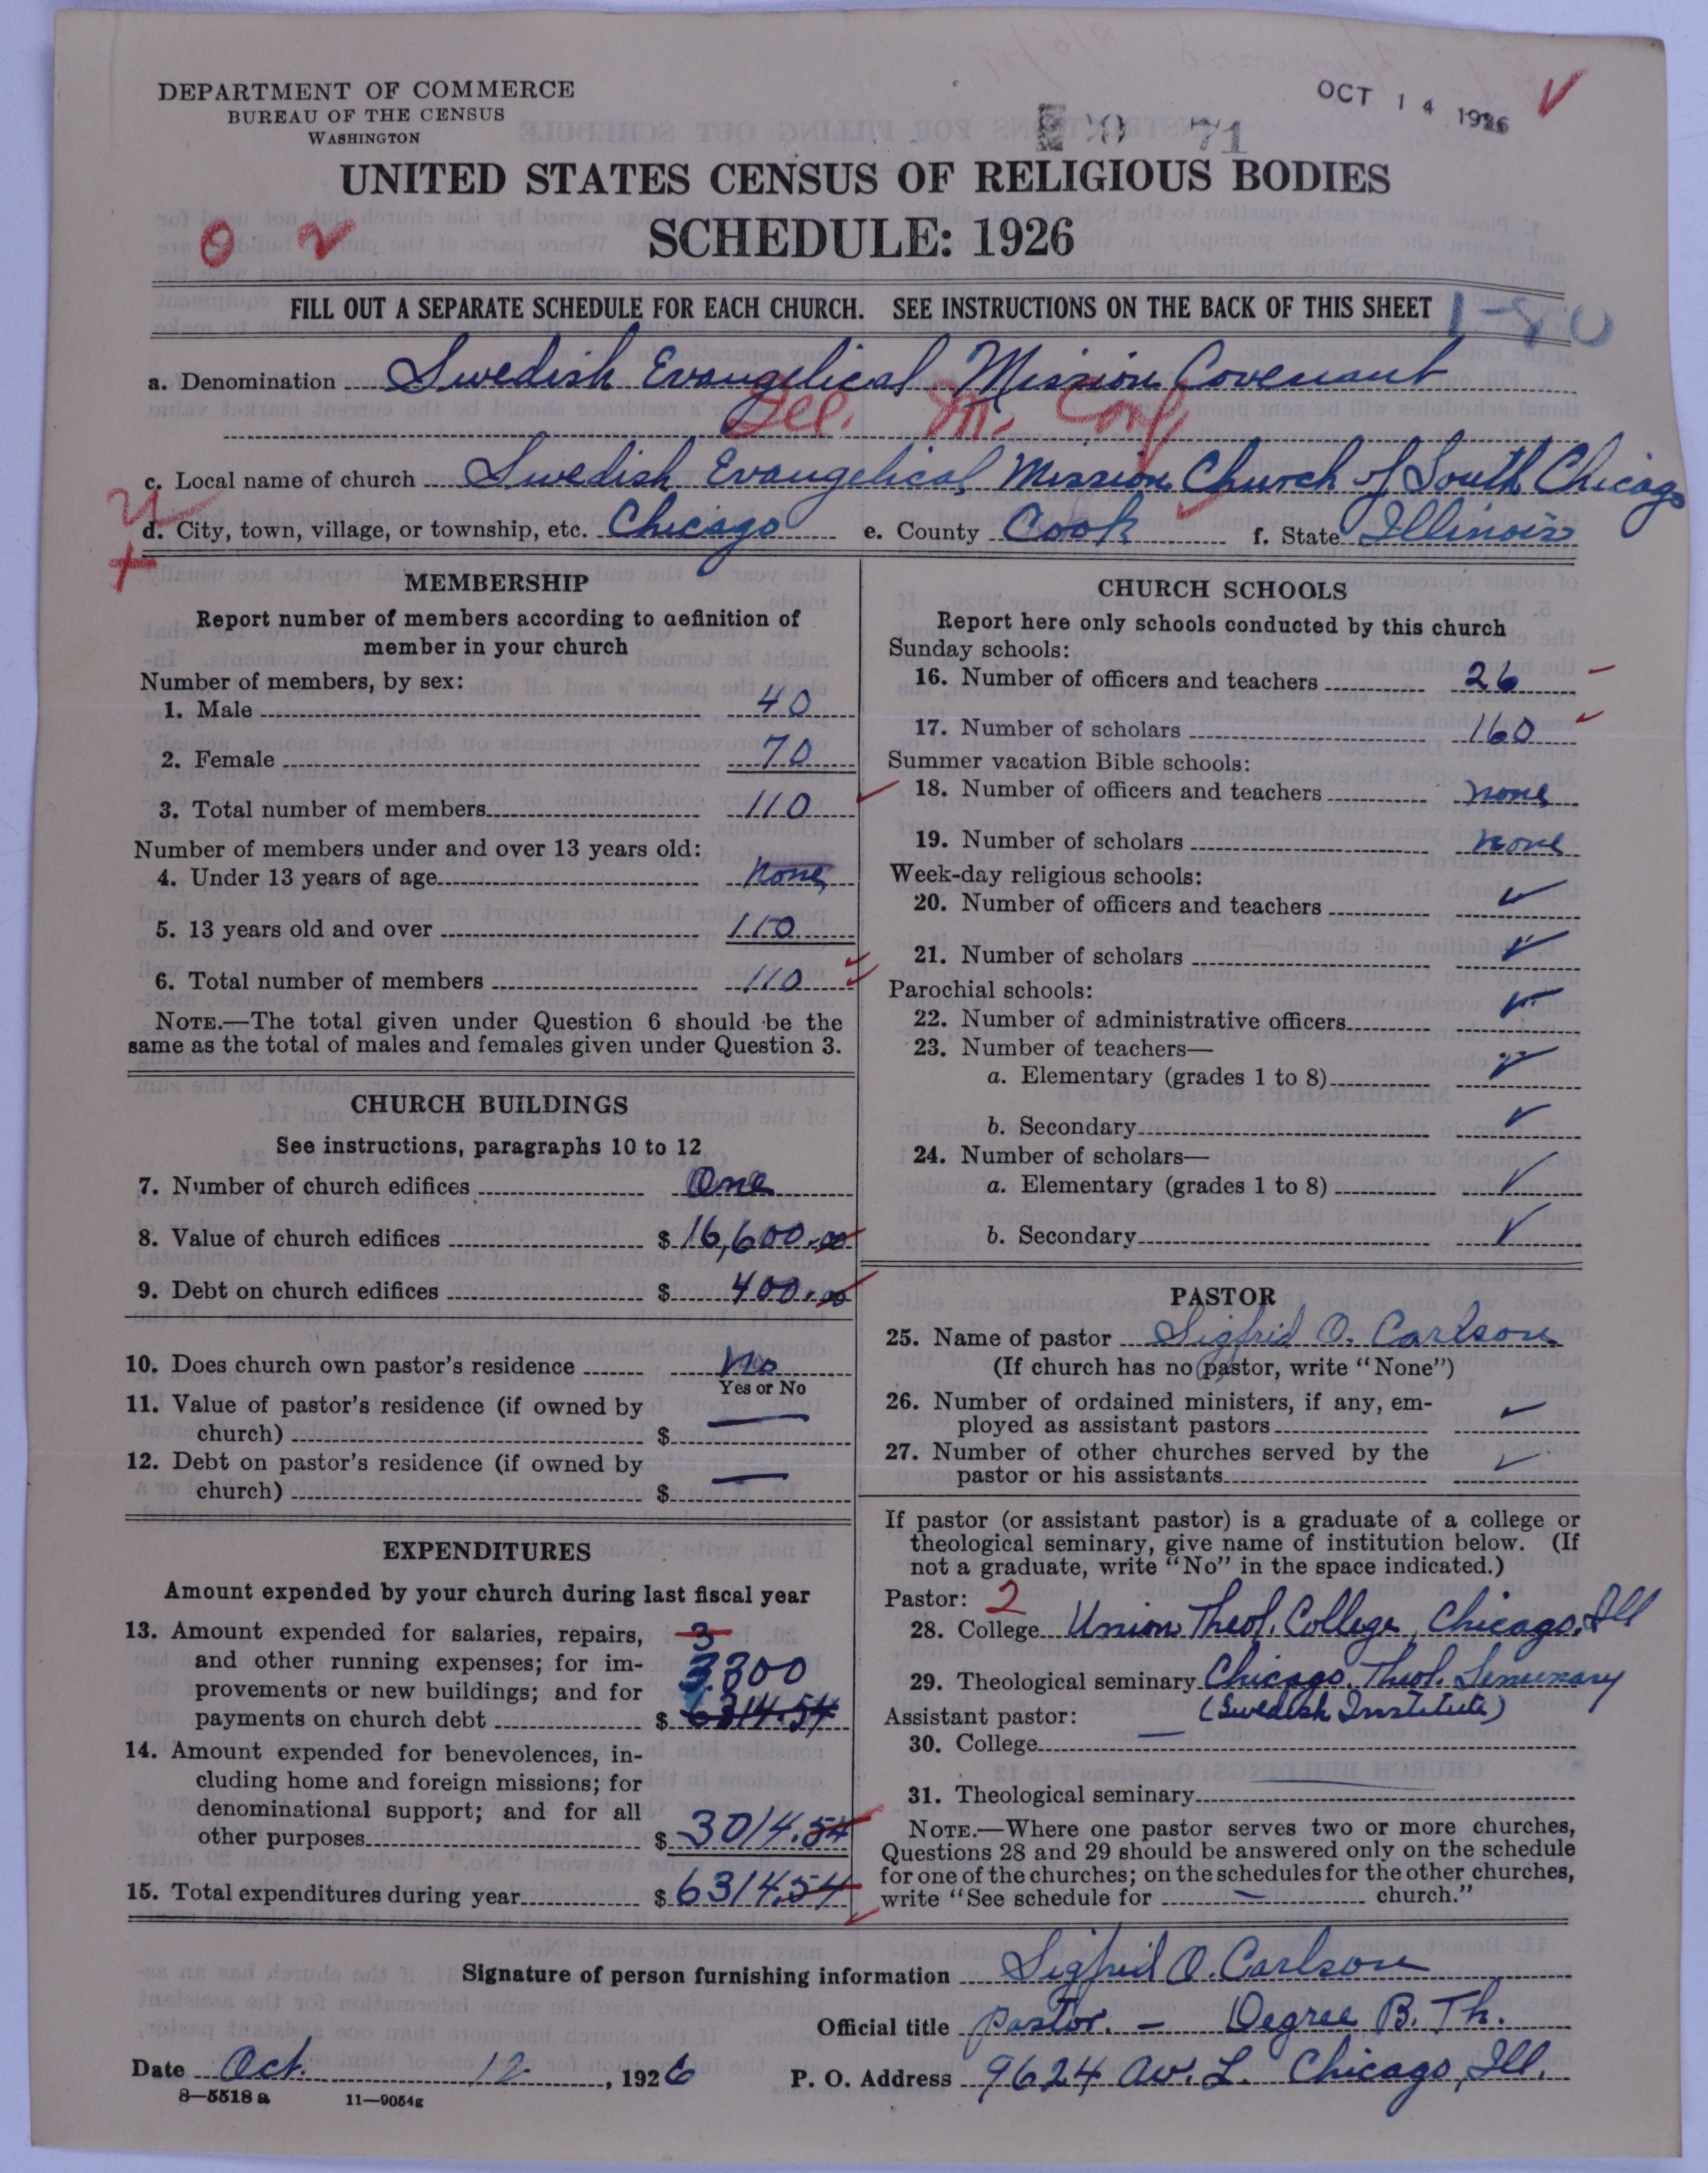 DEPARTMENT OF COMMERCE
BUREAU OF THE CENSUS
WASHINGTON
OCT 14 1926
71
UNITED STATES CENSUS OF RELIGIOUS BODIES
SCHEDULE: 1926
FILL OUT A SEPARATE SCHEDULE FOR EACH CHURCH. SEE INSTRUCTIONS ON THE BACK OF THIS SHEET
1-80
a. Denomination Swedish Evangelical Mission Covenant
Ill. M. Conf
c. Local name of church Swedish Evangelical Mission Church of South Chicago
d. City, town, village, or township, etc. Chicago e. County Cook f. State Illinois
MEMBERSHIP
Report number of members according to definition of
member in your church
Number of members, by sex:
1. Male 40
2. Female 70
3. Total number of members 110
Number of members under and over 13 years old:
4. Under 13 years of age None
5. 13 years old and over 110
6. Total number of members 110
NOTE.—The total given under Question 6 should be the
same as the total of males and females given under Question 3.
CHURCH BUILDINGS
See instructions, paragraphs 10 to 12
7. Number of church edifices One
8. Value of church edifices $ 16,600.00
9. Debt on church edifices $ 400.00
10. Does church own pastor's residence No
Yes or No
11. Value of pastor's residence (if owned by
church) $ —
12. Debt on pastor's residence (if owned by
church) $ —
EXPENDITURES
Amount expended by your church during last fiscal year
13. Amount expended for salaries, repairs, 3
and other running expenses; for im- 3300
provements or new buildings; and for
payments on church debt $ 6314.54
14. Amount expended for benevolences, in-
cluding home and foreign missions; for
denominational support; and for all
other purposes $ 3014.54
15. Total expenditures during year $ 6314.54
CHURCH SCHOOLS
Report here only schools conducted by this church
Sunday schools:
16. Number of officers and teachers 26
17. Number of scholars 160
Summer vacation Bible schools:
18. Number of officers and teachers none
19. Number of scholars none
Week-day religious schools:
20. Number of officers and teachers
21. Number of scholars
Parochial schools:
22. Number of administrative officers
23. Number of teachers—
a. Elementary (grades 1 to 8)
b. Secondary
24. Number of scholars—
a. Elementary (grades 1 to 8)
b. Secondary
PASTOR
25. Name of pastor Sigfrid O. Carlson
(If church has no pastor, write "None")
26. Number of ordained ministers, if any, em-
ployed as assistant pastors
27. Number of other churches served by the
pastor or his assistants
If pastor (or assistant pastor) is a graduate of a college or
theological seminary, give name of institution below. (If
not a graduate, write "No" in the space indicated.)
Pastor: 2
28. College Union Theol. College, Chicago, Ill
29. Theological seminary Chicago Theol. Seminary
(Swedish Institute)
Assistant pastor:
30. College —
31. Theological seminary
NOTE.—Where one pastor serves two or more churches,
Questions 28 and 29 should be answered only on the schedule
for one of the churches; on the schedules for the other churches,
write "See schedule for — church."
Signature of person furnishing information Sigfrid O. Carlson
Official title pastor. – Degree B. Th.
Date Oct. 12, 1926 P. O. Address 9624 Av. L. Chicago, Ill.
8—5518 a 11—9054g